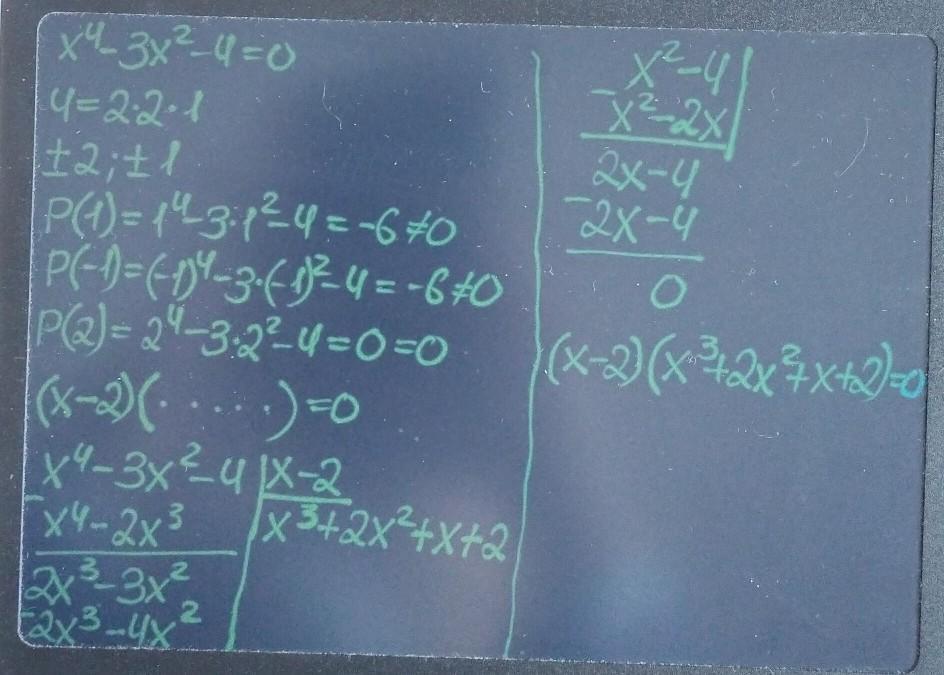 x⁴-3x²-4=0
4=2·2·1
±2;±1
P(1)=1⁴-3·1²-4=-6≠0
P(-1)=(-1)⁴-3·(-1)²-4=-6≠0
P(2)=2⁴-3·2²-4=0=0
(x-2)(·····)=0
x⁴-3x²-4 | x-2
-x⁴-2x³ | x³+2x²+x+2
2x³-3x²
-2x³-4x²
x²-4
-x²-2x
2x-4
-2x-4
0
(x-2)(x³+2x²+x+2)=0